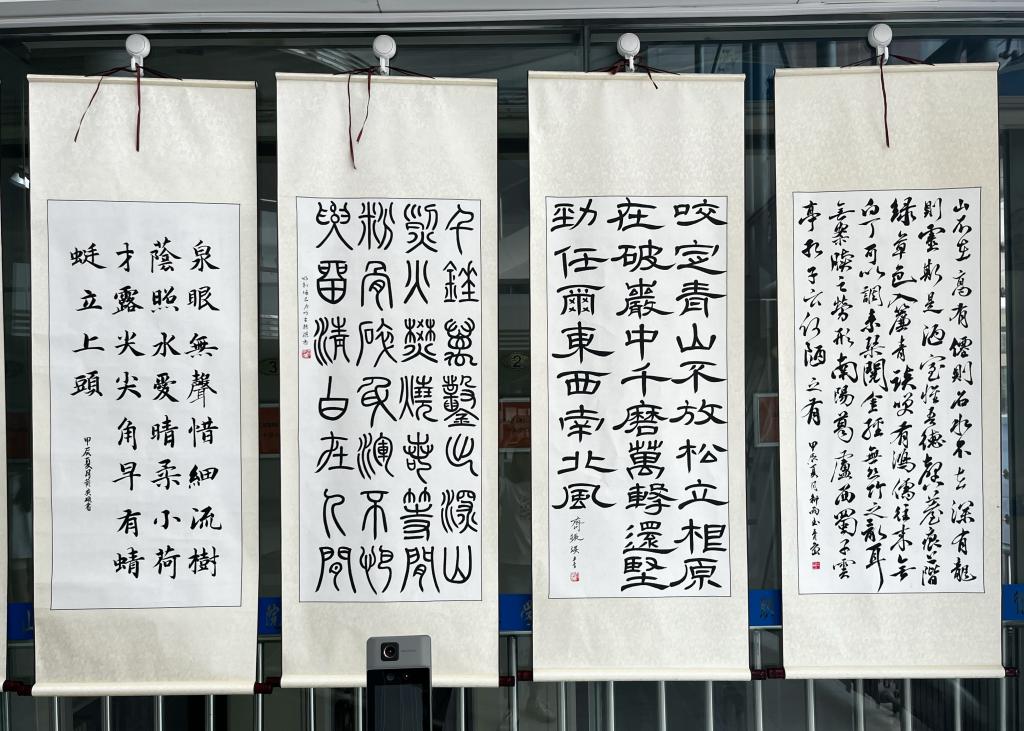 山不在高有僊則名水不在深有龍
則靈斯是陋室惟吾德馨苔痕上階
緑草色入簾青談笑有鴻儒往來無
白丁可以調素琴閱金經無絲竹之亂耳
無案牘之勞形南陽葛廬西蜀子雲
亭孔子云何陋之有
甲辰夏月
咬定青山不放松立根原
在破巖中千磨萬擊還堅
勁任爾東西南北風
千錘萬鑿出深山
烈火焚燒若等閒
粉骨碎身渾不怕
要留清白在人間
泉眼無聲惜細流樹
蔭照水愛晴柔小荷
才露尖尖角早有蜻
蜓立上頭
甲辰夏月